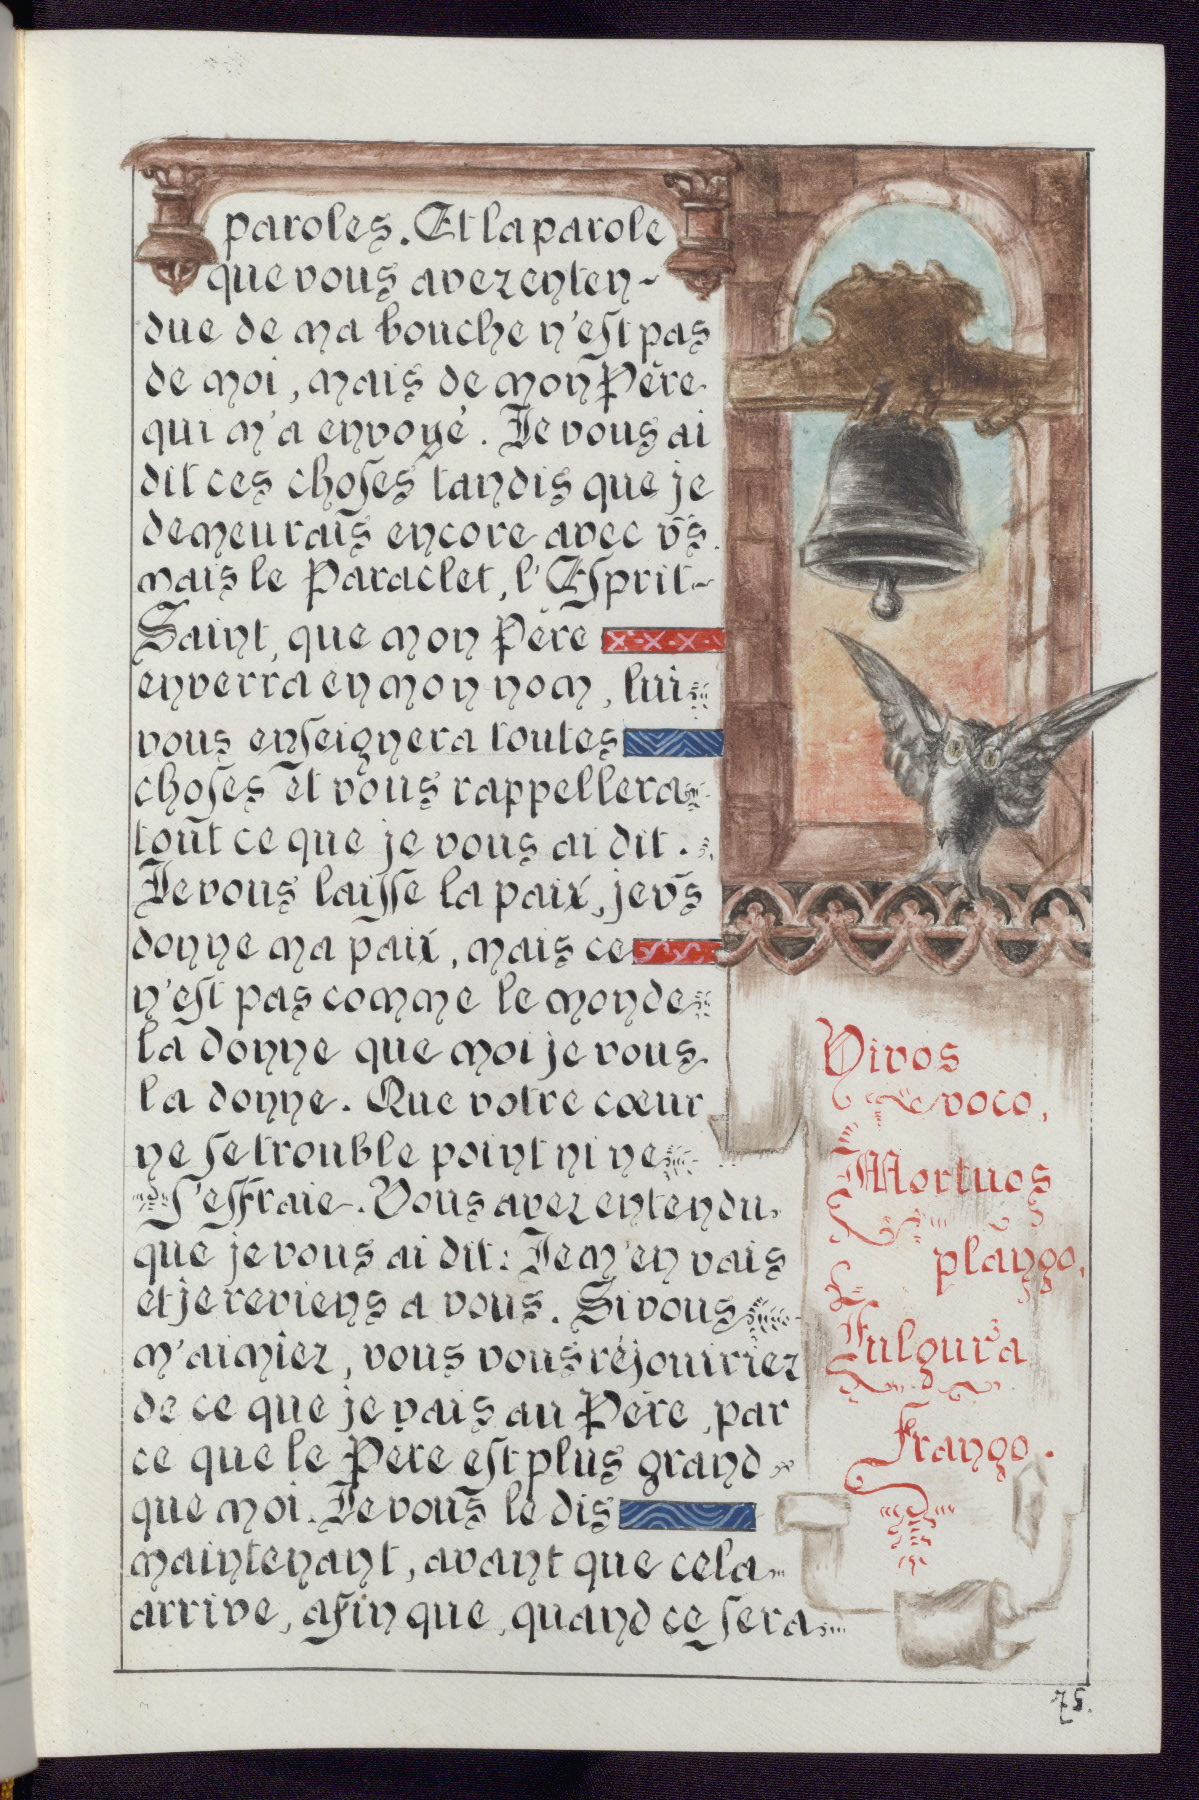 paroles. Et la parole
que vous avez enten-
due de ma bouche n'eſt pas
de moi, mais de mon Père
qui m'a envoyé. Je vous ai
dit ces choſes tandis que je
demeurais encore avec vs̄.
mais le Paraclet, l'Eſprit-
Saint, que mon Père
enverra en mon nom, lui
vous enſeignera toutes
choſes et vous rappellera
tout ce que je vous ai dit.
Je vous laiſſe la paix, je vs̄
donne ma paix, mais ce
n'eſt pas comme le monde
la donne que moi je vous
la donne. Que votre cœur
ne ſe trouble point ni ne
ſ'effraie. Vous avez entendu
que je vous ai dit: Je m'en vais
et je reviens a vous. Si vous
m'aimiez, vous vous réjouiriez
de ce que je vais au Père, par
ce que le Père eſt plus grand
que moi. Je vous le dis
maintenant, avant que cela
arrive, afin que, quand ce ſera
Vivos
voco,
Mortuos
plango,
Fulgura
Frango.
75.